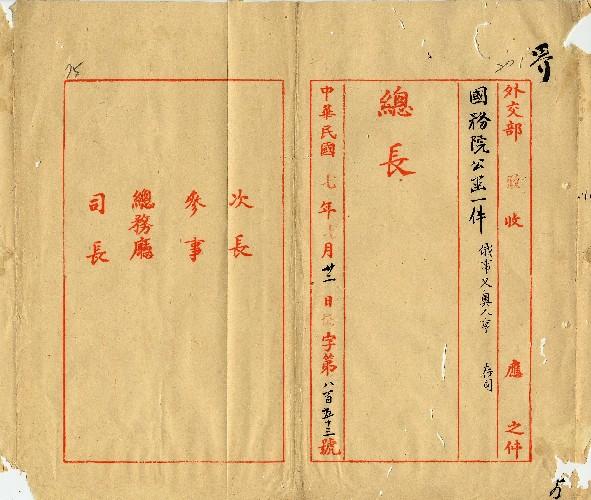 外交部 收 應 之件
國務院公函一件
俄事 奧人事 存司
總長
中華民國七年 月廿三日 字第八百五十三號
次長
參事
總務廳
司長